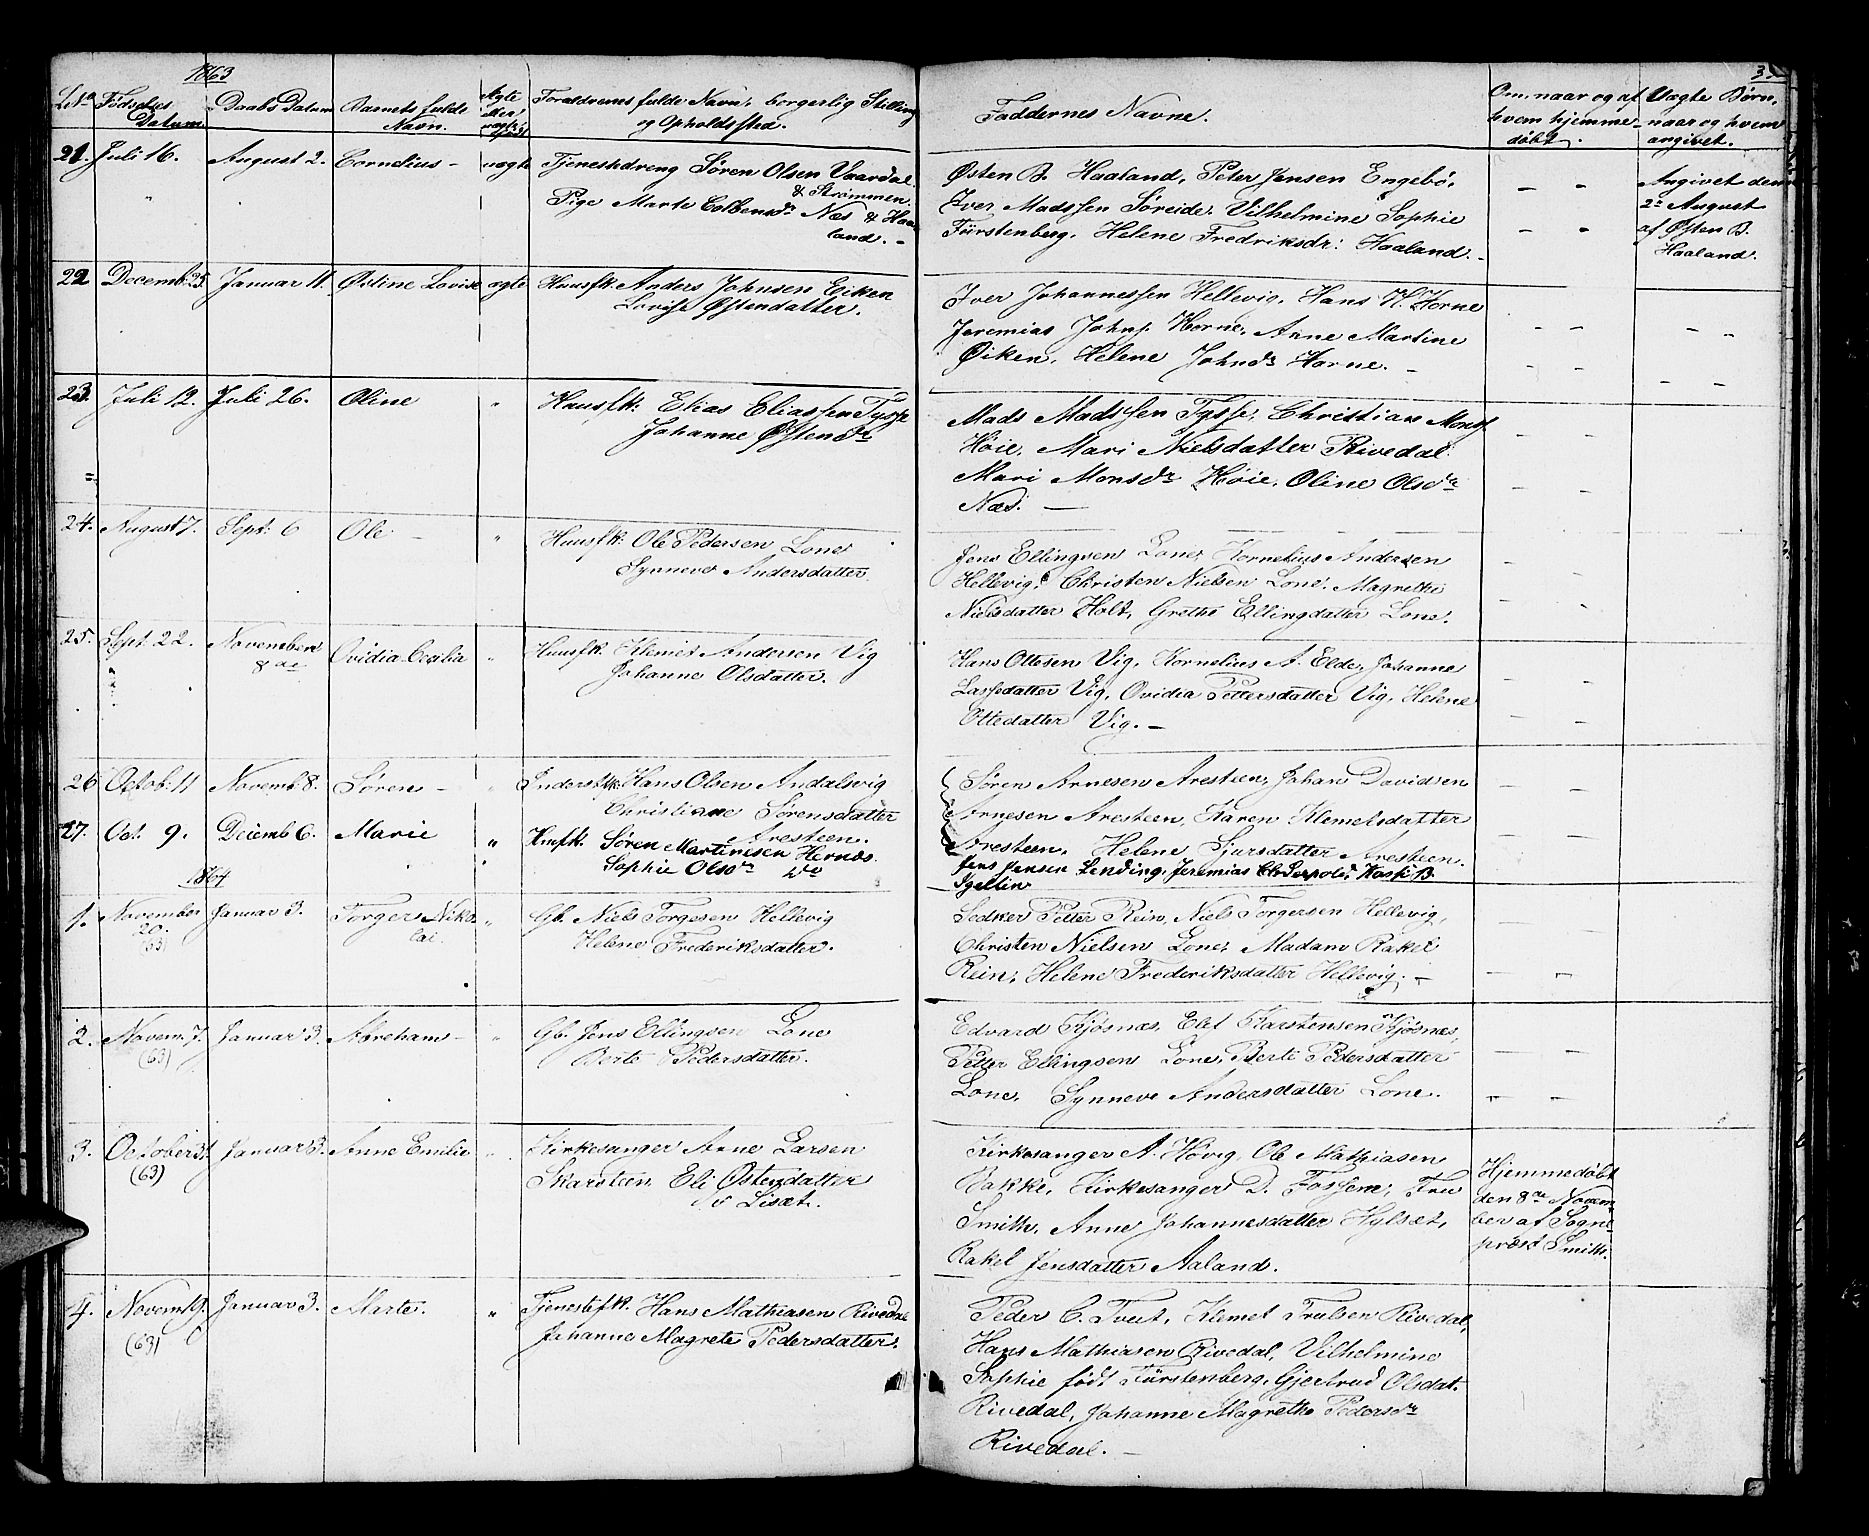 1863
Fødselse Datum
Daabs Datum
Barnets fulde Navn.
Ægte eller uægte
Foreldrenes fulde Navn, borgerlig Stilling
og Opholdssted.
Faddernes Navne.
Om, naar og af
hvem hjemme-
døbt.
Uægte Børn,
naar og hvem
angivet.
21. Juli 16. August 2. Cornelius - uægte Tjenestedreng Søren Olsen Vaardal
& Strømmen.
Pige Marte Colbensdr Næs & Haa
land. -
Østen B. Haaland, Peter Jensen Engebö,
Iver Madssen Søreide, Vilhelmine Sophie
Fürstenberg, Helene Fredriksdr: Haaland. -
Angivet den
2n August
af Østen B.
Haaland.
22 Decemb: 25. Januar 11. Østine Lovise ægte Huusfk Anders Johnsen Eiken
Lovise Østendatter.
Iver Johannessen Hellevig, Hans H. Horne
Jeremias Johns. Horne, Anne Martine
Øiken, Helene Johnsdr Horne. -
23. Juli 12. Juli 26. Oline " Huusfk: Elias Eliassen Tysse
Johanne Østensdr
Mads Madssen Tysse, Christian Mons.
Høie, Mari Nielsdatter Rivedal
Mari Monsdr Høie, Oline Olsdr
Næs. -
24. August 7. Sept: 6 Ole - " Huusfk: Ole Pedersen Lone
Synneve Andersdatter.
Jens Ellingsen Lone, Kornelius Andersen
Hellevig, Christen Nielsen Lone, Magrethe
Nielsdatter Holt, Grethe Ellingdatter Lone.
25. Sept. 22. November
8de Ovidia Cecilia " Huusfk. Klemet Andersen Vig
Johanne Olsdatter.
Hans Ottesen Vig, Kornelius A. Elde, Johanne
Lassedatter Vig, Ovidia Pettersdatter Vig, Helene
Ottedatter Vig. -
26 Octob: 11 Novemb 8. Søren - " Inderstfk: Hans Olsen Andalsvig
Christiane Sørensdatter
Aresteen.
Søren Arnesen Aresteen, Johan Davidsen
Arnesen Aresteen, Karen Klemetsdatter
Aresteen, Helene Sjursdatter Aresteen.
27. Oct. 9. Decemb 6. Marie " Hmfk. Søren Martinesen Hernæs.
Sophie Olsdr do
Jens Jensen Lending, Jeremias
1864
1. November
20.
(63) Januar 3. Torger Niko
lai. " Gb. Niels Torgesen Hellevig
Helene Frederiksdatter.
Petter Rein, Niels Torgersen Hellevig,
Christen Nielsen Lone, Madam Rakel
Rein, Helene Frederiksdatter Hellevig. -
2. Novem. 7. Januar 3. Abreham - " Gb. Jens Ellingsen Lone
(63) Berte Pedersdatter.
Edvard Kjøsnæs, Elet Karstensen Kjøsnæs,
Petter Ellingsen Lone, Berte Pedersdatter
Lone, Synneve Andersdatter Lone.
3. October 31. Januar 3. Anne Emilie " Kirkesanger Arne Larsen
(63) Skarsteen, Eli Østendatter
Lisæt.
Kirkesanger A. Høvig, Ole Mathiasen
Bakke, Kirkesanger D. Fossem, Frue
Smith, Anne Johannesdatter Hylsæt,
Rakel Jensdatter Aaland.
Hjemmedøbt
den 8de Novem
ber af Sogne
præst Smith.
4. Novem 19. Januar 3. Marte. " Tjenestefk. Hans Mathiasen Rivedal
(63) Johanne Magrete Pedersdatter.
Peder C. Tveit, Klemet Trulsen Rivedal,
Hans Mathiasen Rivedal, Vilhelmine
Sophie født Fürstenberg, Gjertrud Olsdat.
Rivedal, Johanne Magrethe Pedersdr
Rivedal. -